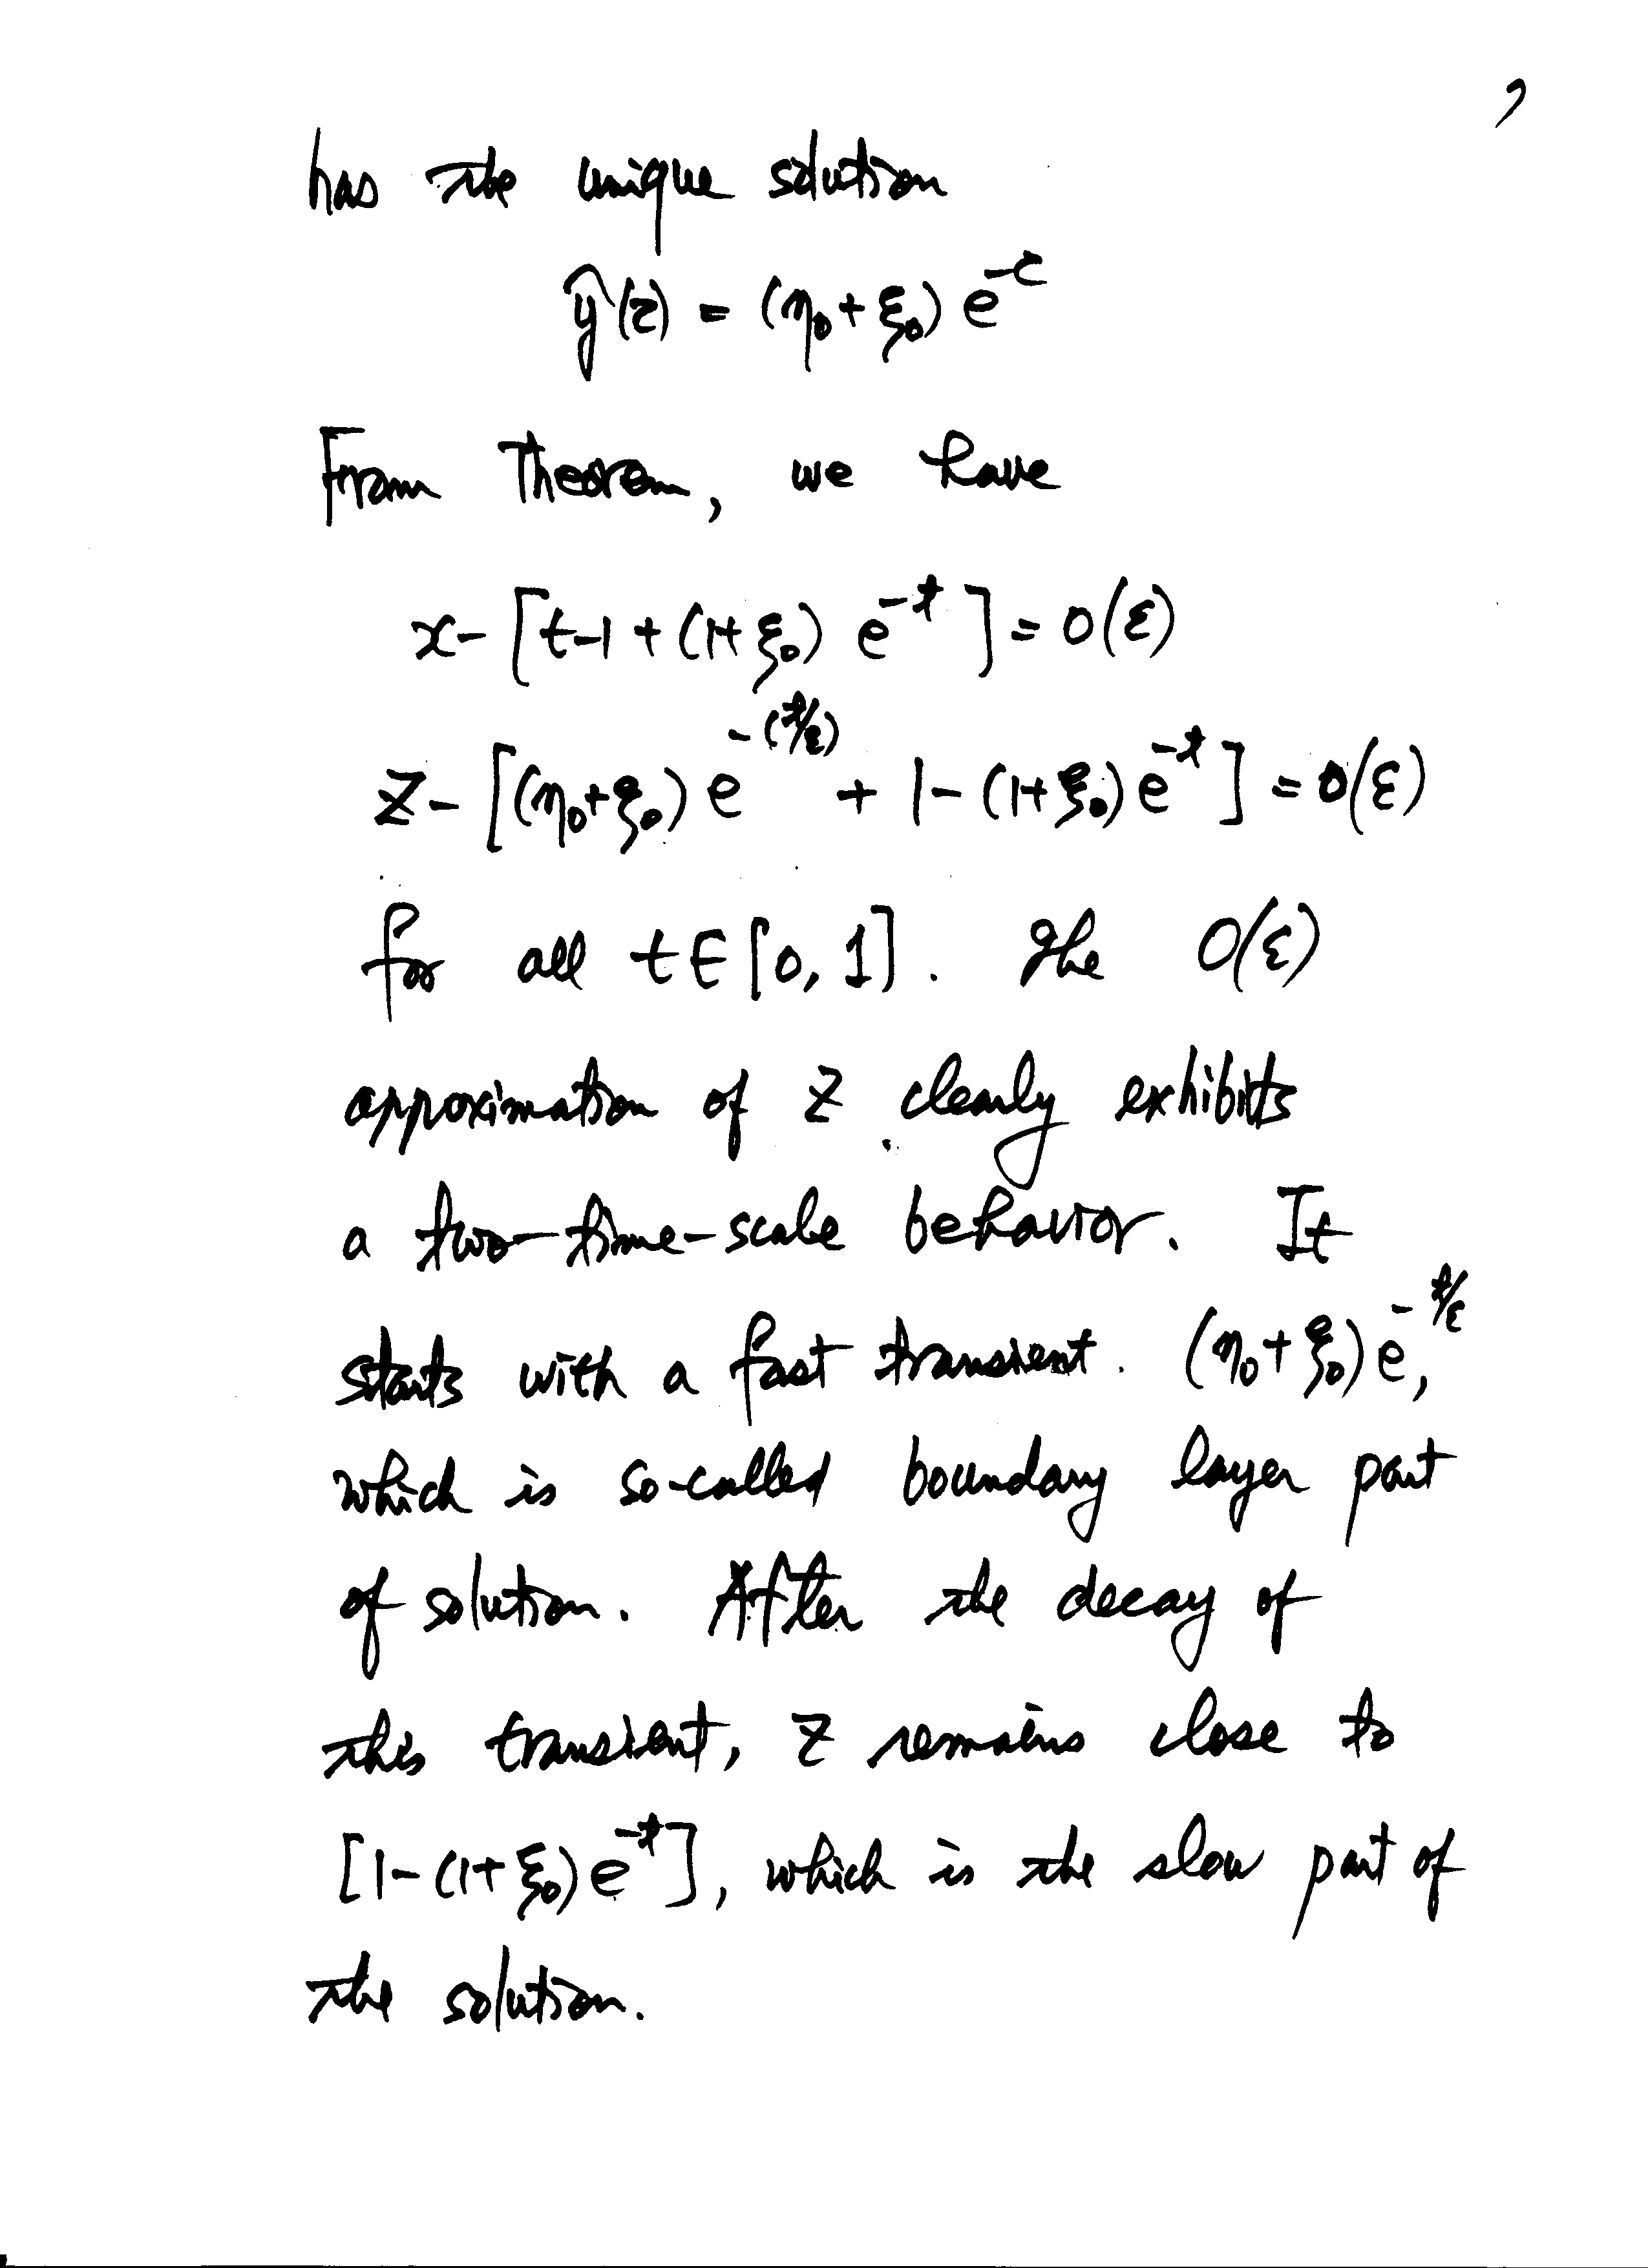 7
has the unique solution
ŷ(τ) = (η₀+ξ₀) e^{-τ}
From Theorem, we have
x-[t-1+(1+ξ₀) e^{-t}] = O(ε)
z-[(η₀+ξ₀) e^{-(t/ε)} + 1-(1+ξ₀) e^{-t}] = O(ε)
for all t∈[0, 1]. The O(ε)
approximation of z clearly exhibits
a two-time-scale behavior. It
starts with a fast transient. (η₀+ξ₀) e^{-t/ε},
which is so-called boundary layer part
of solution. After the decay of
this transient, z remains close to
[1-(1+ξ₀) e^{-t}], which is the slow part of
the solution.